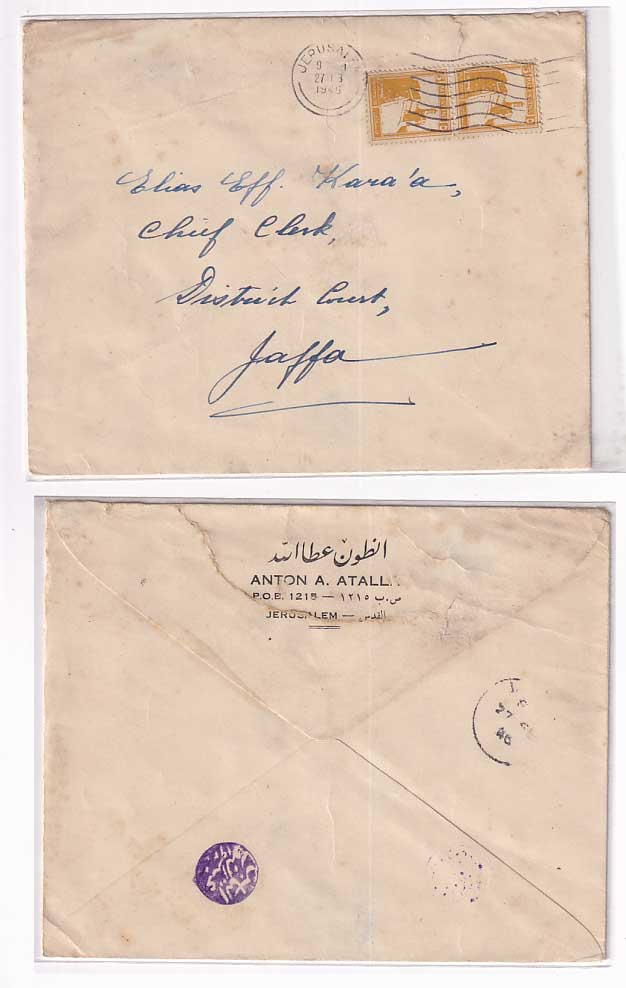 JERUSALEM
27
1946
Elias Eff. Kara'a,
Chief Clerk,
District Court,
Jaffa
انطون عطاالله
ANTON A. ATALLA
P.O.B. 1215 — ص.ب ١٢١٥
JERUSALEM — القدس
27
46